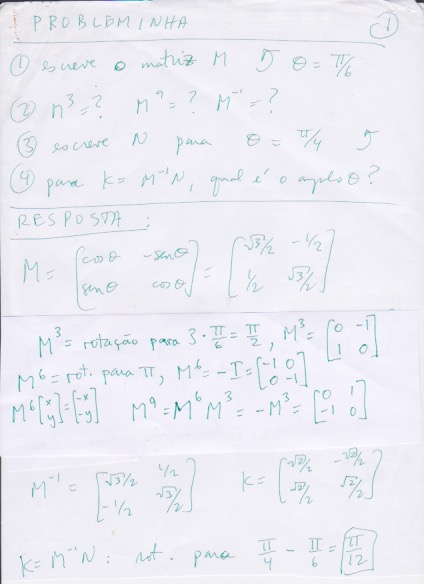 PROBLEMINHA 1
① escreve o matriz M ↺ θ = π/6
② M³ = ? M⁹ = ? M⁻¹ = ?
③ escreve N para θ = π/4 ↺
④ para K = M⁻¹N, qual é o anglo θ?
RESPOSTA :
M = [cos θ -sen θ; sen θ cos θ] = [√3/2 -1/2; 1/2 √3/2]
M³ = rotação para 3 · π/6 = π/2, M³ = [0 -1; 1 0]
M⁶ = rot. para π, M⁶ = -I = [-1 0; 0 -1]
M⁶ [x; y] = [-x; -y] M⁹ = M⁶ M³ = -M³ = [0 1; -1 0]
M⁻¹ = [√3/2 1/2; -1/2 √3/2] K = [√2/2 -√2/2; √2/2 √2/2]
K = M⁻¹N : rot. para π/4 - π/6 = π/12